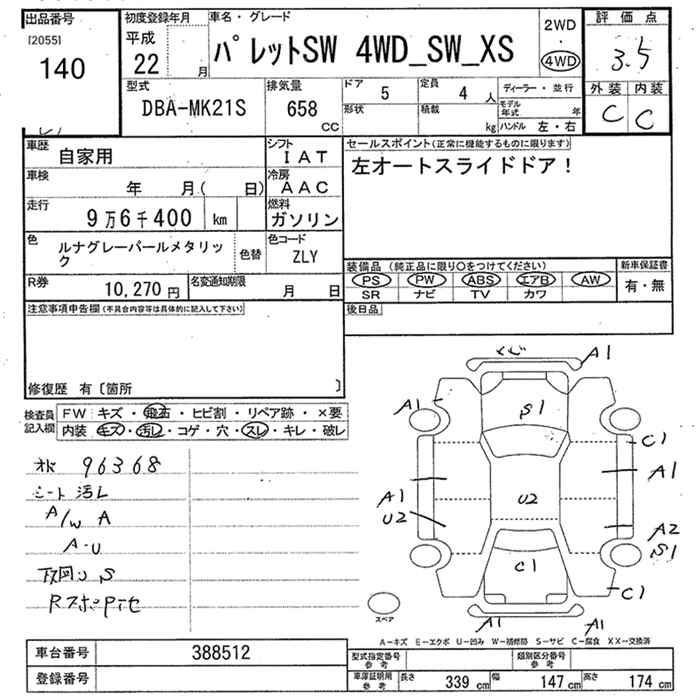 出品番号
[2055]
140
初度登録年月
平成
22 月
車名・グレード
パレットSW 4WD_SW_XS
2WD
・
4WD
評価点
3.5
外装 内装
C C
型式
DBA-MK21S
排気量
658
CC
ドア
5
定員
4 人
形状
積載
kg
ディーラー・並行
モデル年式 年
ハンドル 左・右
車歴
自家用
シフト
IAT
車検
年 月( 日)
冷房
AAC
走行
9万6千400 km
燃料
ガソリン
色
ルナグレーパールメタリック
色替
色コード
ZLY
R券
10,270 円
名変通知期限
月 日
セールスポイント(正常に機能するものに限ります)
左オートスライドドア!
装備品 (純正品に限り〇をつけてください)
PS PW ABS エアB AW
SR ナビ TV カワ
新車保証書
有・無
注意事項申告欄(不具合内容等は具体的に記入して下さい)
後日品
修復歴 有〔箇所 〕
検査員記入欄
FW キズ・飛石・ヒビ割・リペア跡・×要
内装 キズ・汚レ・コゲ・穴・スレ・キレ・破レ
96368
シート汚レ
A/W A
A-U
下回り S
A1
A1
S1
C1
A1
A1
U2
U2
A2
S1
C1
C1
A1
A1
スペア
A-キズ E-エクボ U-凹み W-補修跡 S-サビ C-腐食 XX-交換済
車台番号
388512
登録番号
型式指定番号
参考
類別区分番号
参考
車庫証明用
参考
長さ 339 cm
幅 147 cm
高さ 174 cm